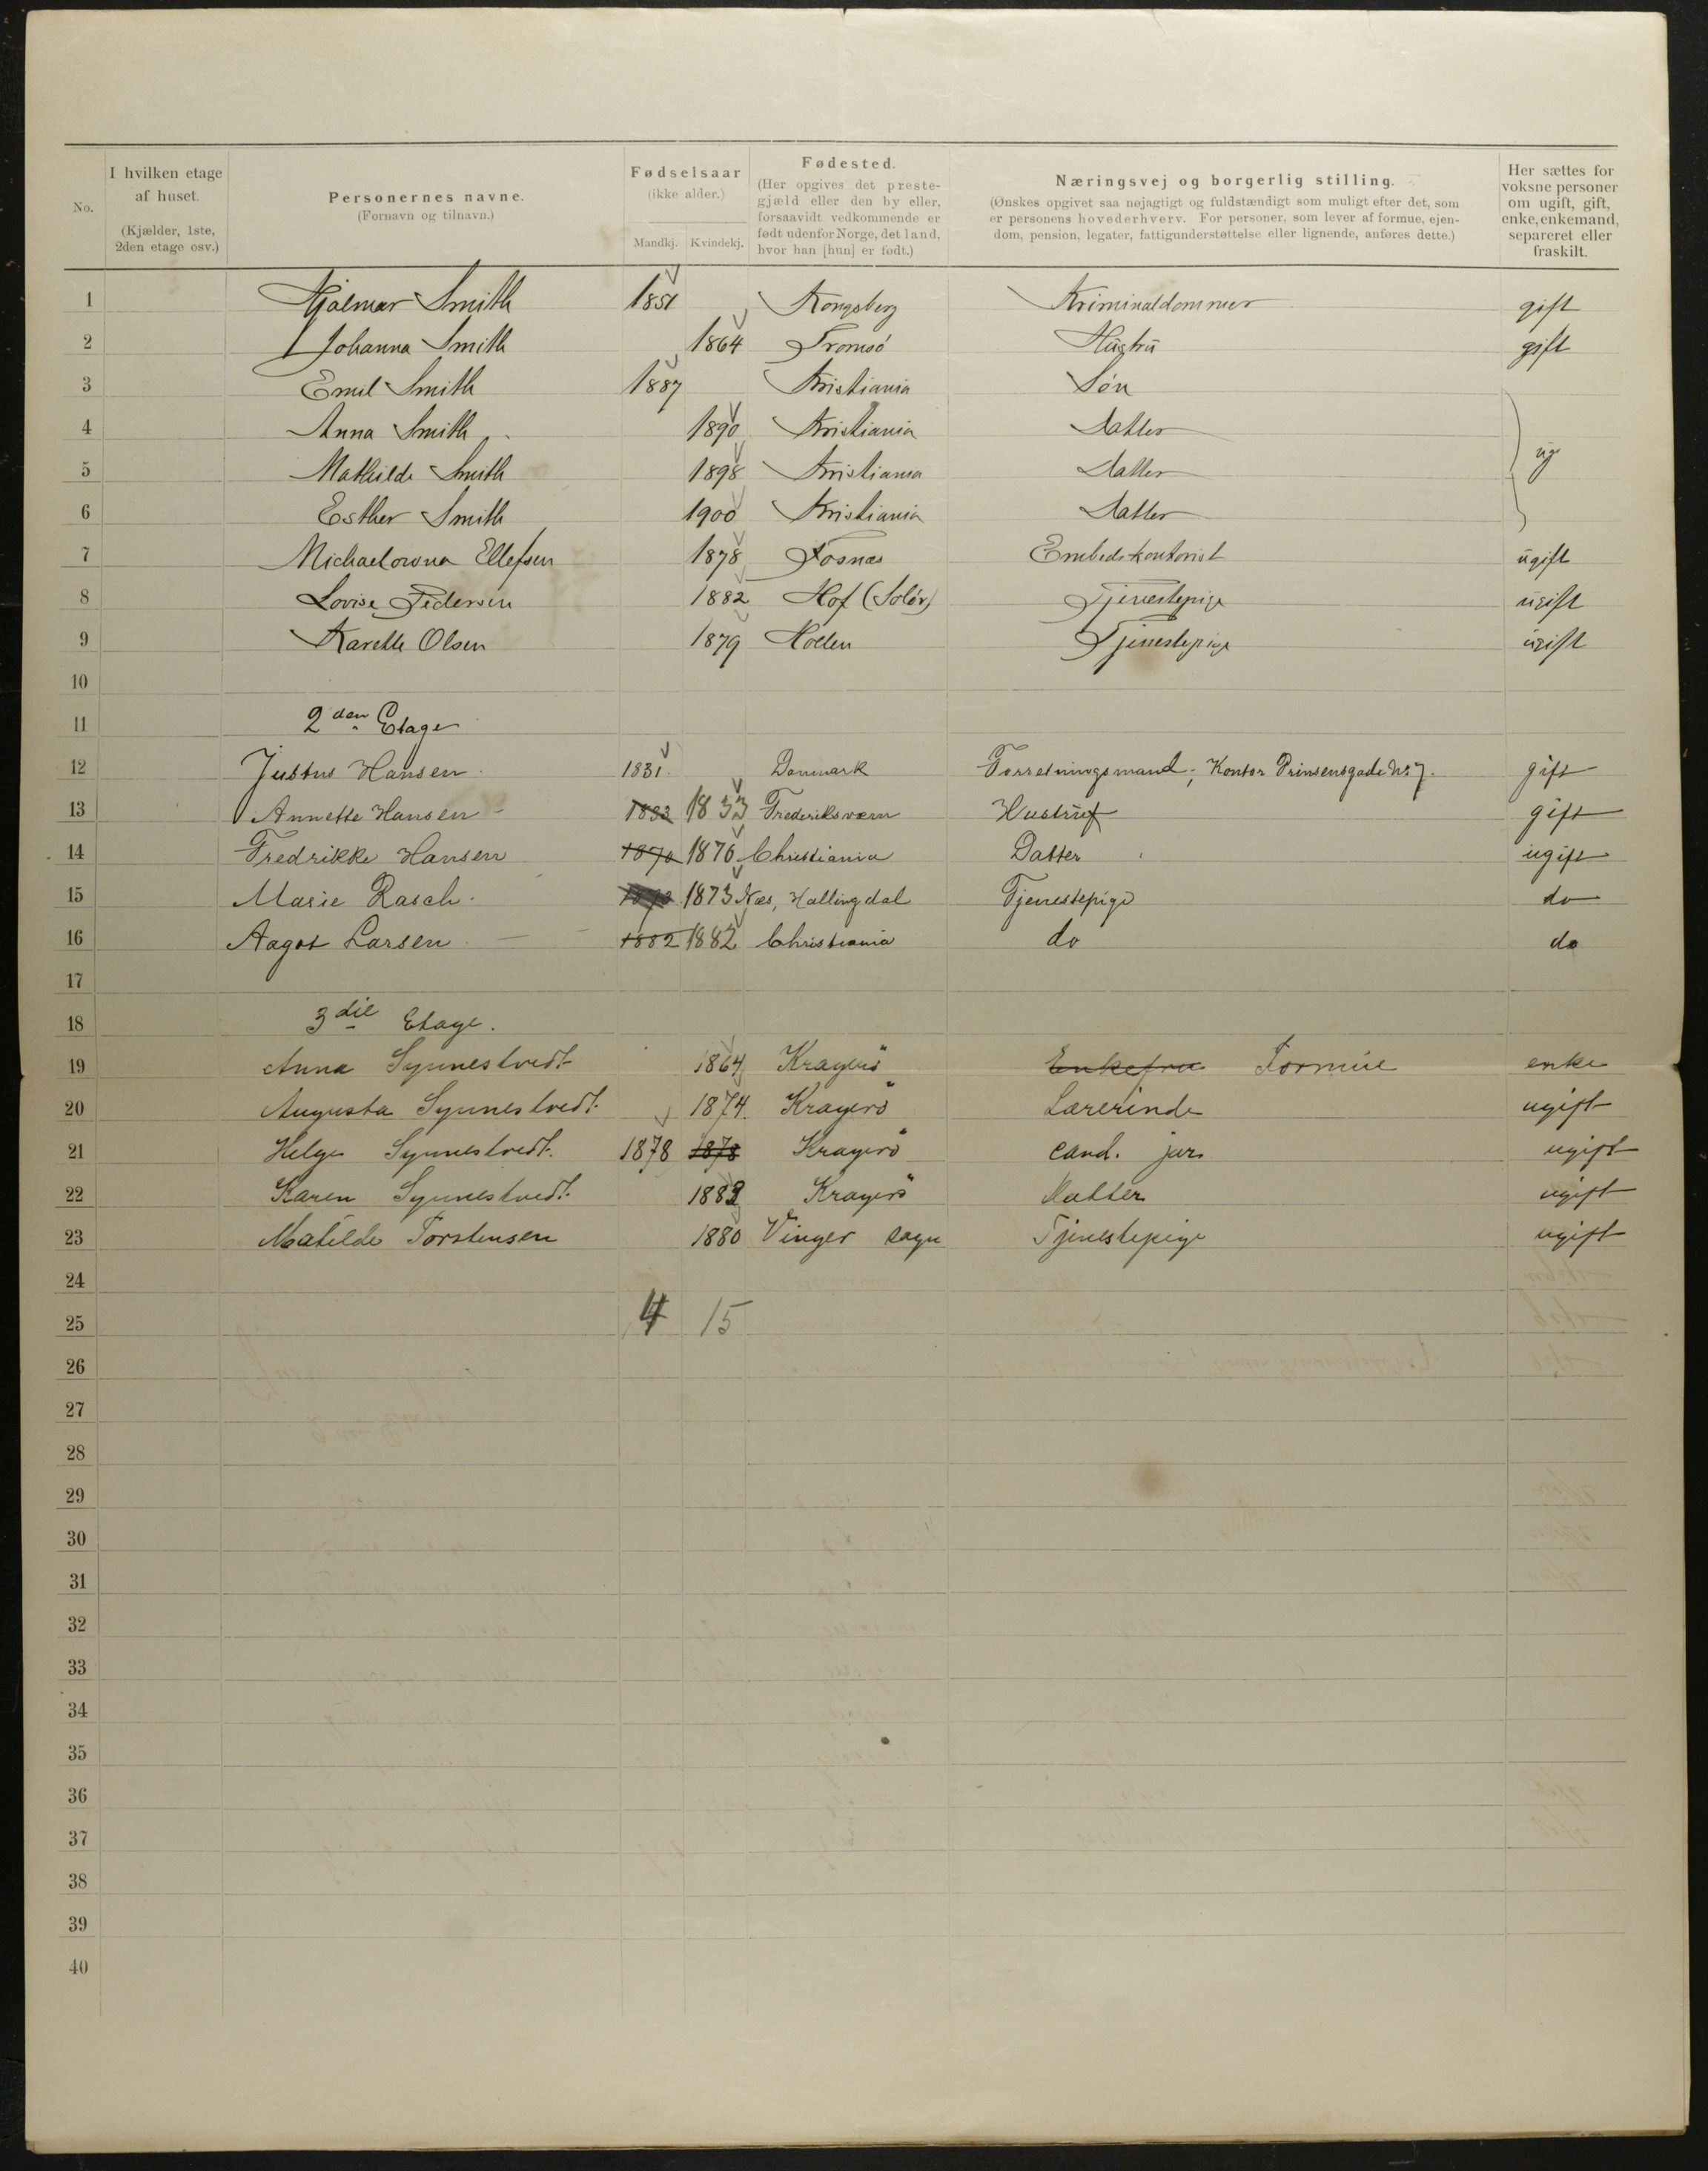 No.
I hvilken etage af huset. (Kjælder, 1ste, 2den etage osv.)
Personernes navne. (Fornavn og tilnavn.)
Fødselsaar (ikke alder.) Mandkj. Kvindekj.
Fødested. (Her opgives det prestegjæld eller den by eller, forsaavidt vedkommende er født udenfor Norge, det land, hvor han [hun] er født.)
Næringsvej og borgerlig stilling. (Ønskes opgivet saa nøjagtigt og fuldstændigt som muligt efter det, som er personens hovederhverv. For personer, som lever af formue, ejendom, pension, legater, fattigunderstøttelse eller lignende, anføres dette.)
Her sættes for voksne personer om ugift, gift, enke, enkemand, separeret eller fraskilt.
1 Hjalmar Smith 1851 Kongsberg Kriminaldommer gift
2 Johanna Smith 1864 Tromsö Hustru gift
3 Emil Smith 1887 Kristiania Søn
4 Anna Smith 1890 Kristiania Datter ug
5 Mathilde Smith 1898 Kristiania Datter
6 Esther Smith 1900 Kristiania Datter
7 Michaelowna Ellefsen 1878 Fosnæs Embedskontorist ugift
8 Lovise Pedersen 1882 Hof (Solør) Tjenestepige ugift
9 Karette Olsen 1879 Holten Tjenestepige ugift
10
11 2den Etage
12 Justus Hansen 1831 Danmark Forretningsmand; Kontor Prinsensgade No 7. gift
13 Annette Hansen 1833 1833 Frederiksværn Hustruf gift
14 Fredrikke Hansen 1870 1870 Christiania Datter ugift
15 Marie Rasch 1873 Næs, Hallingdal Tjenestepige do
16 Aagot Larsen 1882 1882 Christiania do do
17
18 3die Etage.
19 Anna Synnestvedt 1864 Kragerö Enkefru Formue enke
20 Augusta Synnestvedt 1874. Kragerö Lærerinde ugift
21 Helge Synnestvedt. 1878 1878 Kragerö cand. jur. ugift
22 Karen Synnestvedt. 1882 Kragerö Datter ugift
23 Matilde Torstensen 1880 Vinger sogn Tjenestepige ugift
24
25 4 15
26
27
28
29
30
31
32
33
34
35
36
37
38
39
40